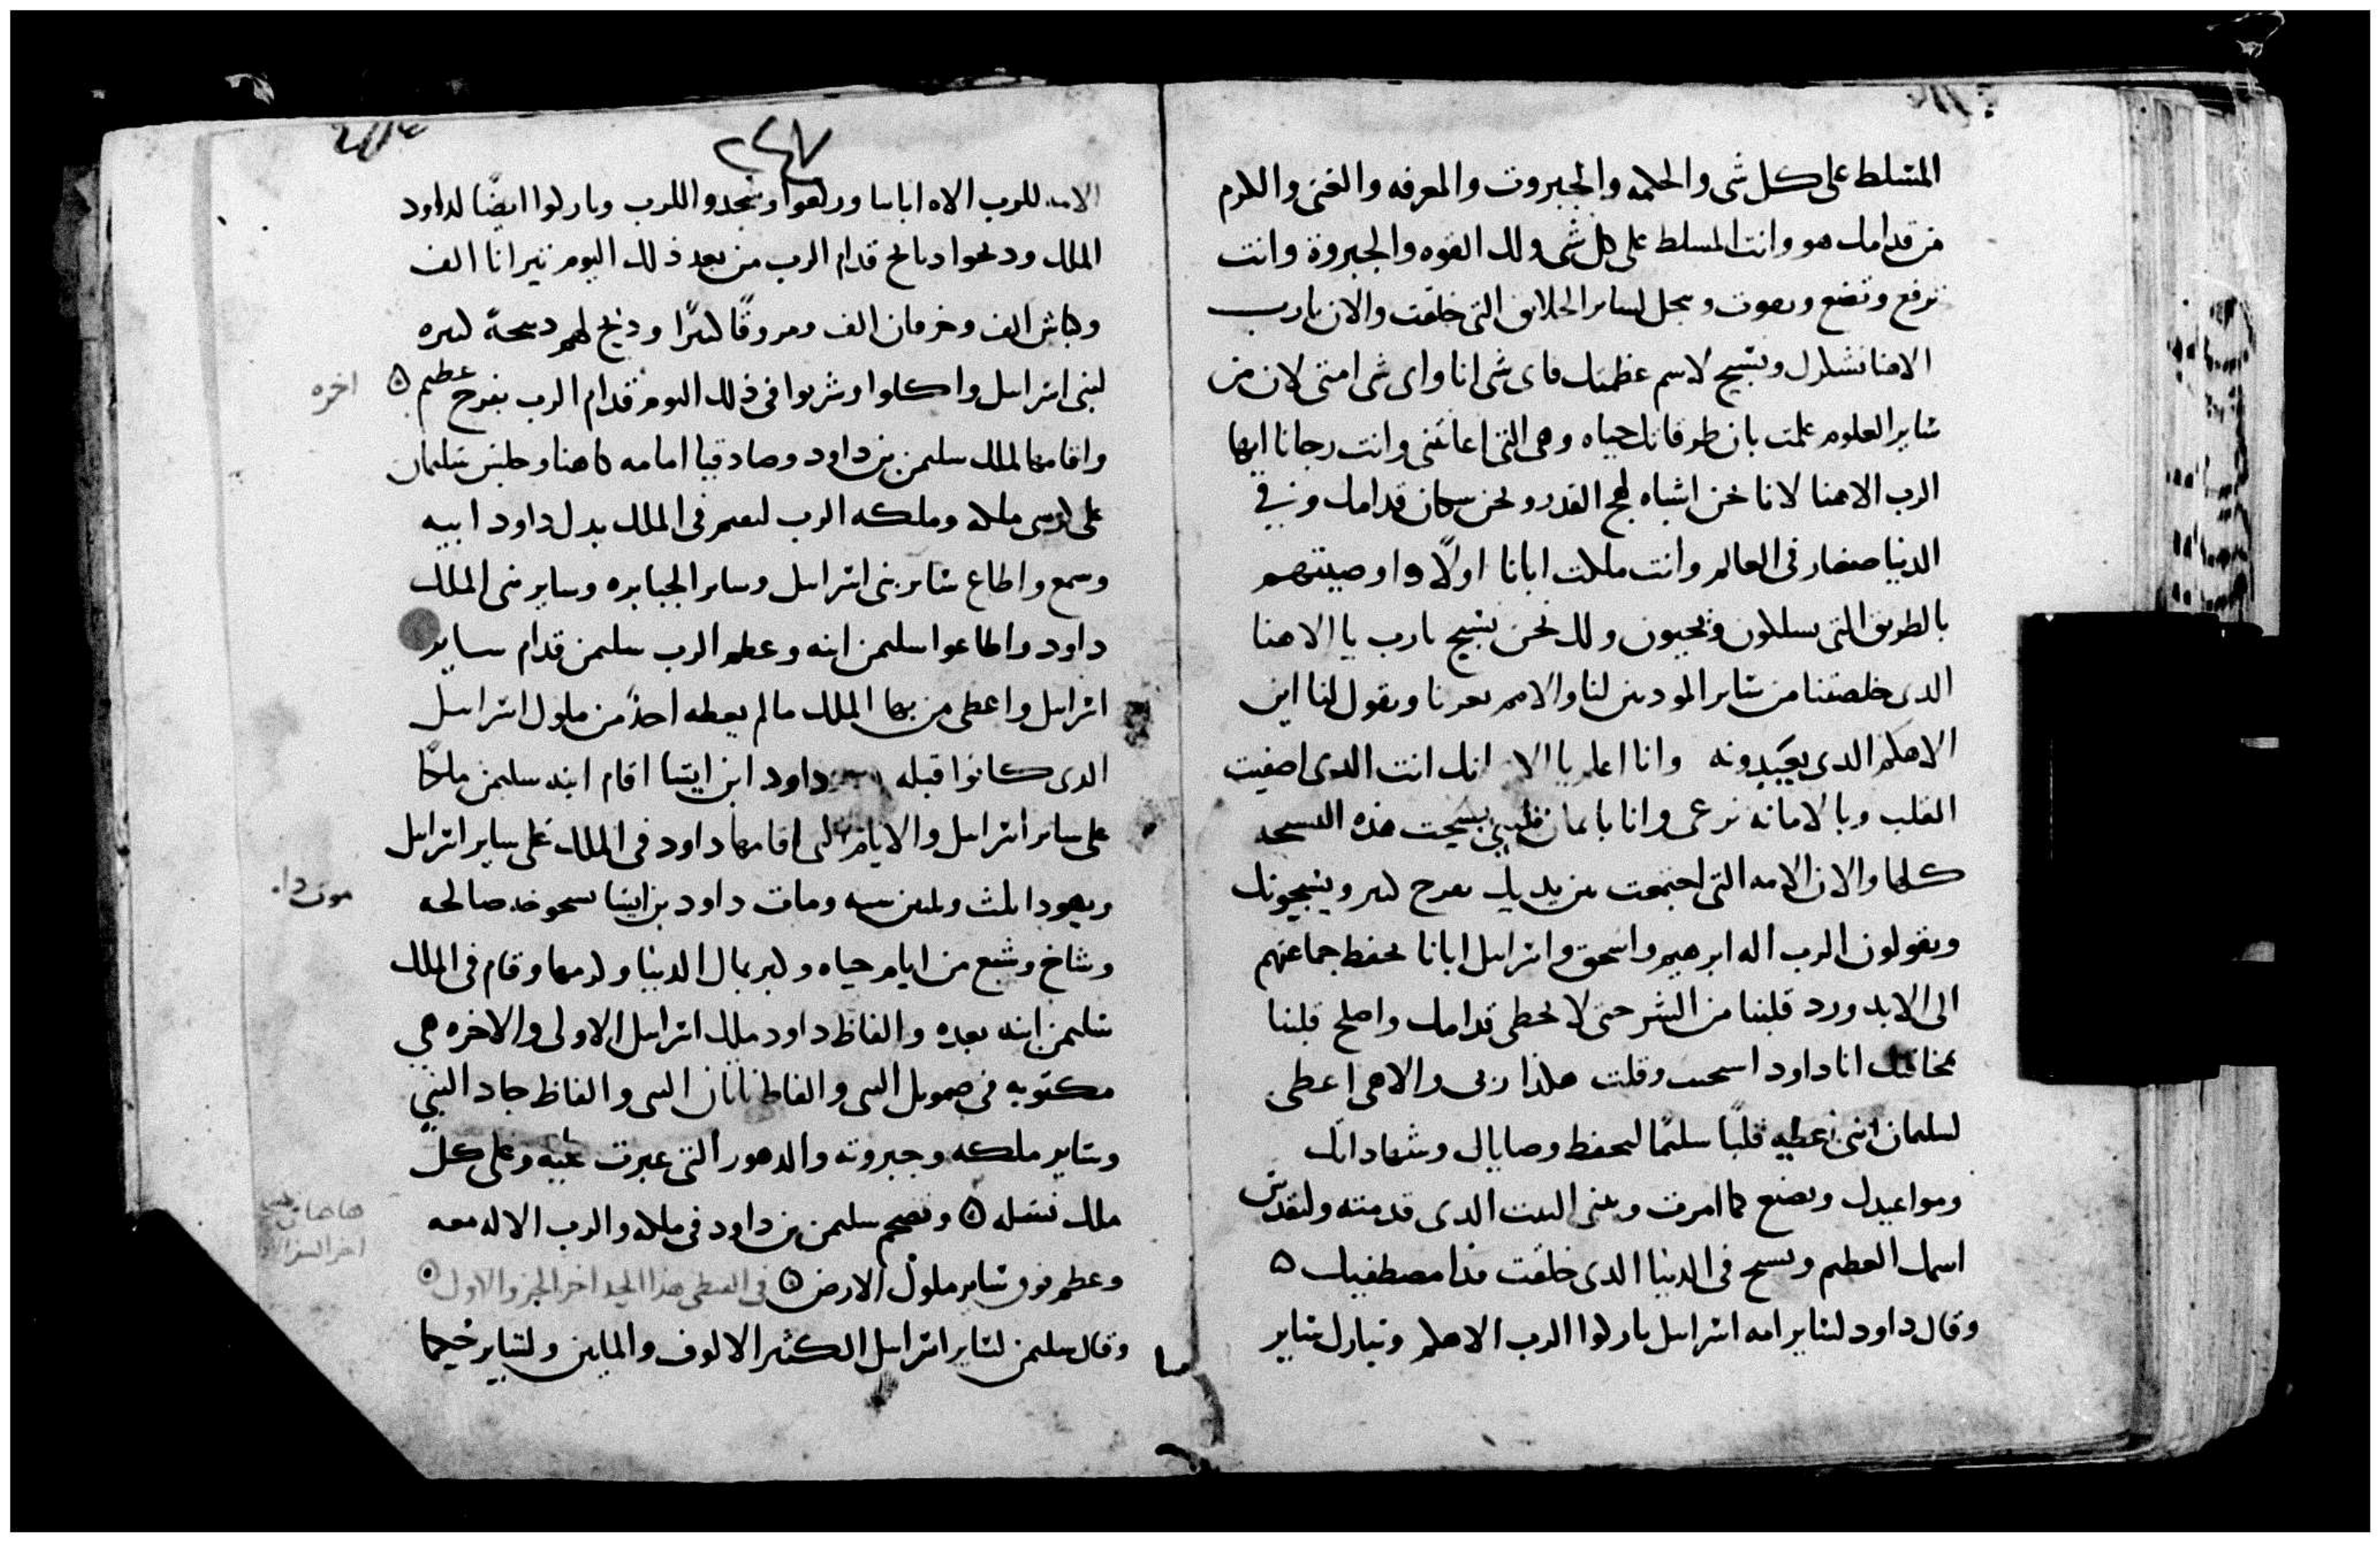 المتسلط على كل شى والحكمه والجبروت والمعرفه والغنى والكرم
من قدامك هو وانت المسلط على كل شى ولك القوه والجبروة وانت
ترفع وتضع وبجل لساير الخلايق التى خلقت والان يارب
الاهنا نشكرك ونسبح لاسم عظمتك فاى شى انا واى شى امتى لان من
ساير العلوم علمت بان طرقاتك حياه وهى التى اعانتنى وانت رجانا ايها
الرب الاهنا لانا نحن اشباه ونحن سكان قدامك وفى
الدنيا صغار فى العالم وانت ملكت ابانا اولًا واوصيتهم
بالطريق التى يسلكون ويحيون ولك نحن نسبح يارب يا الاهنا
الدى خلصتنا من ساير المودين لنا والامم تعيرنا ويقول لنا اين
الاهكم الدى تعبدونه وانا اعلم يا الاه انك انت الدى اصفيت
القلب وبالامانه ترعى وانا بايمان قلبى سبحت هذه التسبحه
كلها والان الامه التى اجتمعت بين يديك بفرح كبير ويسبحونك
ويقولون الرب اله ابرهيم واسحق واسراييل ابانا يحفظ جماعتهم
الى الابد ورد قلبنا من الشر حتى لا نخطى قدامك واصلح قلبنا
بمخافتك انا داود وقلت هكذا ربى والاهى اعطى
لسليمان ابنى اعطيه قلبًا سليمًا ليحفظ وصاياك وشهاداتك
ومواعيدك ويصنع كما امرت ويبنى البيت الدى قدمته ولتقدس
اسمك العظيم ويسبح فى الدنيا الدى خلقت
وقال داود لساير امه اسراييل باركوا الرب الاهكم وتبارك ساير
٢٤٧
الامه للرب الاه ابانا وركعوا وسجدوا للرب وباركوا ايضًا لداود
الملك ودبحوا دبايح قدام الرب من بعد ذلك اليوم تيرانا الف
وكباش الف وخرفان الف ومروقًا كبيرًا ودبح لهم دبيحة كبيره
لبنى اسراييل واكلوا وشربوا فى ذلك اليوم قدام الرب بفرح عظيم
اخره
واقاموا الملك سليمن بن داود وصادقيا امامه كاهنا وجلس سليمان
على كرسى ملكه وملكه الرب ليقيم فى الملك بدل داود ابيه
وسمع واطاع ساير بنى اسراييل وساير الجبابره وساير بنى الملك
داود واطاعوا سليمن ابنه وعظم الرب سليمن قدام ساير
اسراييل واعطى من بها الملك مالم يعطه احدًا من ملوك اسراييل
الدى كانوا قبله داود ابن ايسا اقام ابنه سليمن ملكًا
على ساير اسراييل والايام التى اقامها داود فى الملك على ساير اسراييل
ويهودا ثلث وثلثين سنه ومات داود بن ايسا بشيخوخه صالحه
موت دا.
وشاخ وشبع من ايام حياه وكبر بمال الدنيا وكرمها وقام فى الملك
سليمن ابنه بعده والفاظ داود ملك اسراييل الاولى والاخره هى
مكتوبه فى صمويل النبى والفاظ ناتان النبى والفاظ جاد النبى
وساير ملكه وجبروته والدهور التى عبرت عليه وعلى كل
ملك وتصحح سليمن بن داود فى ملكه والرب الاله معه
هاهنا
اخر السفر
وعظم فوق ساير ملوك الارض فى القبطى هذا الحد اخر الجزو الاول
وقال سليمن لساير اسراييل الكثير الالوف والمايين ولساير